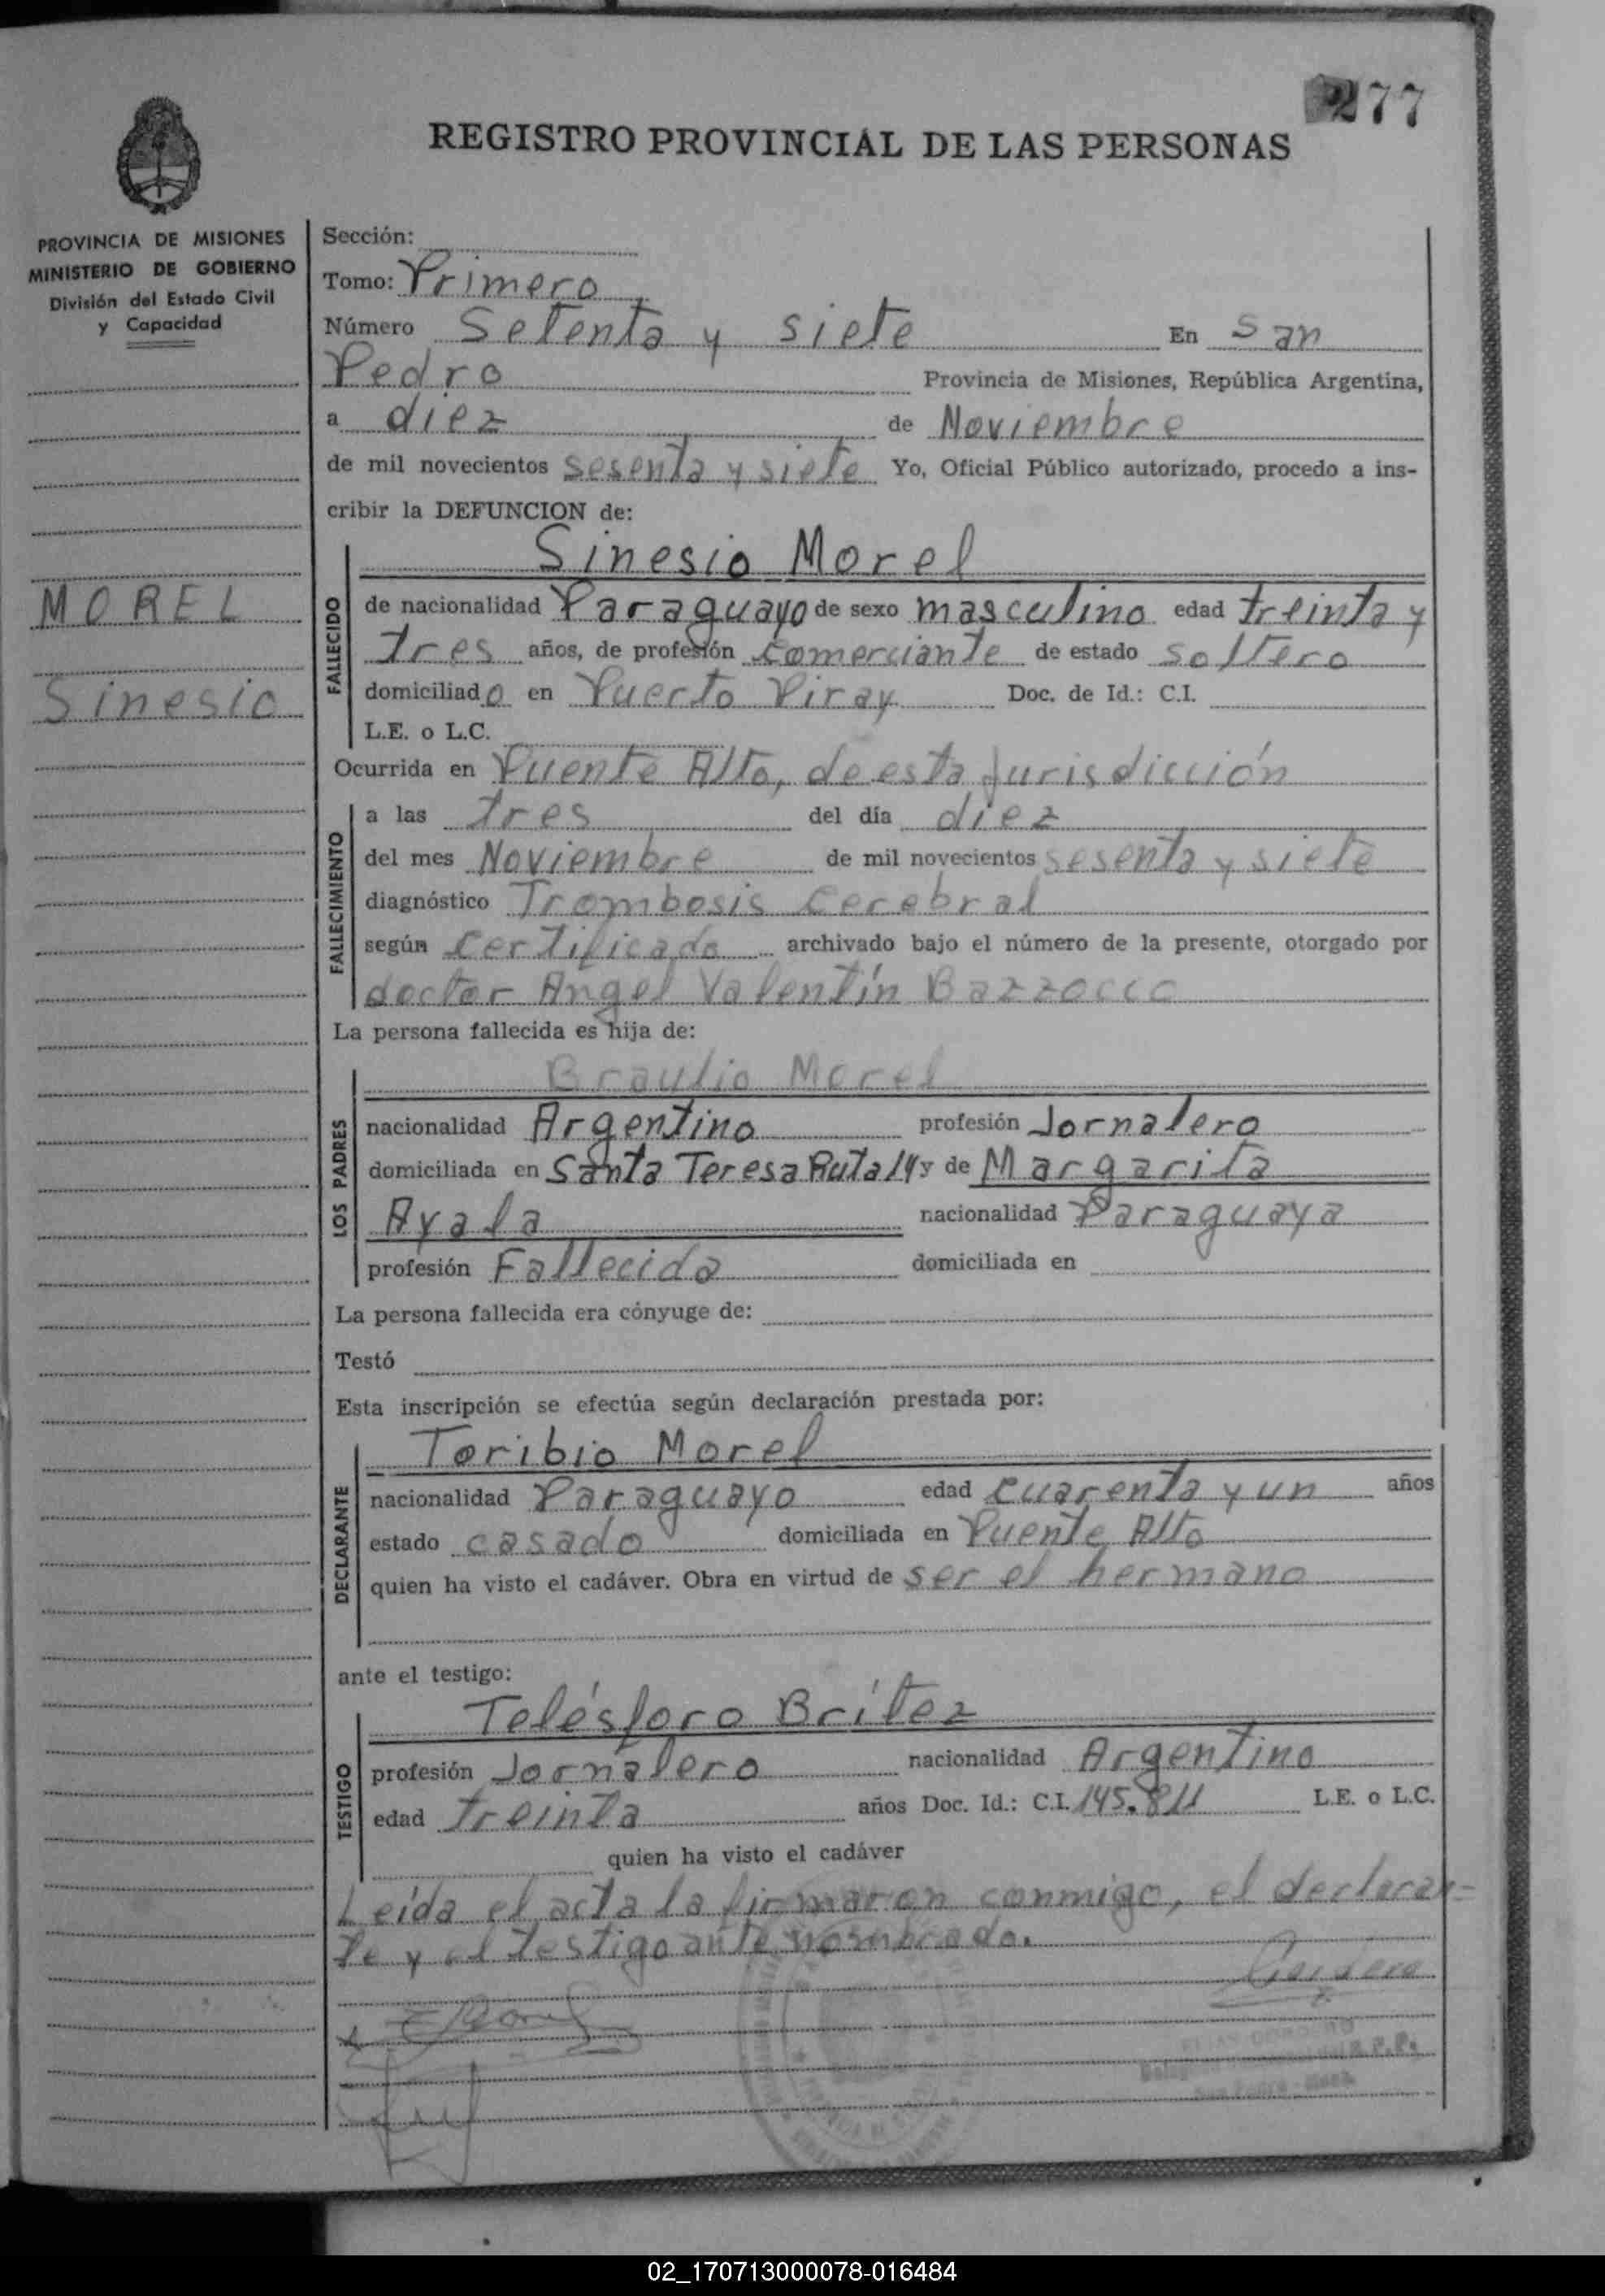 277
REGISTRO PROVINCIAL DE LAS PERSONAS
PROVINCIA DE MISIONES
MINISTERIO DE GOBIERNO
División del Estado Civil
y Capacidad
MOREL
Sinesio
Sección:
Tomo: Primero
Número Setenta y siete En San
Pedro Provincia de Misiones, República Argentina,
a diez de Noviembre
de mil novecientos sesenta y siete Yo, Oficial Público autorizado, procedo a ins-
cribir la DEFUNCION de:
FALLECIDO
Sinesio Morel
de nacionalidad Paraguayo de sexo masculino edad treinta y
tres años, de profesión comerciante de estado soltero
domiciliado en Puerto Piray Doc. de Id.: C.I.
L.E. o L.C.
Ocurrida en Puente Alto, de esta Jurisdicción
FALLECIMIENTO
a las tres del día diez
del mes Noviembre de mil novecientos sesenta y siete
diagnóstico Trombosis Cerebral
según Certificado archivado bajo el número de la presente, otorgado por
doctor Angel Valentín Bazzocco
La persona fallecida es hija de:
LOS PADRES
Braulio Morel
nacionalidad Argentino profesión Jornalero
domiciliada en Santa Teresa Ruta 14 y de Margarita
Ayala nacionalidad Paraguaya
profesión Fallecida domiciliada en
La persona fallecida era cónyuge de:
Testó
Esta inscripción se efectúa según declaración prestada por:
DECLARANTE
Toribio Morel
nacionalidad Paraguayo edad cuarenta y un años
estado casado domiciliada en Puente Alto
quien ha visto el cadáver. Obra en virtud de ser el hermano
ante el testigo:
TESTIGO
Telésforo Brítez
profesión Jornalero nacionalidad Argentino
edad treinta años Doc. Id.: C.I. 145.811 L.E. o L.C.
quien ha visto el cadáver
Leída el acta la firmaron conmigo, el declaran-
te y el testigo ante nombrado.
02_170713000078-016484